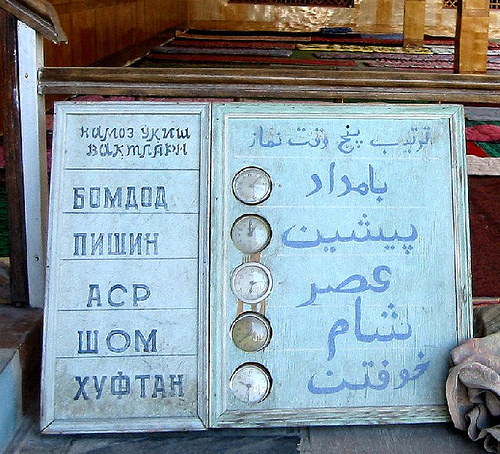 НАМОЗ ЎҚИШ
ВАҚТЛАРИ
БОМДОД
ПИШИН
АСР
ШОМ
ХУФТАН
ترتیب پنج وقت نماز
بامداد
پیشین
عصر
شام
خوفتن